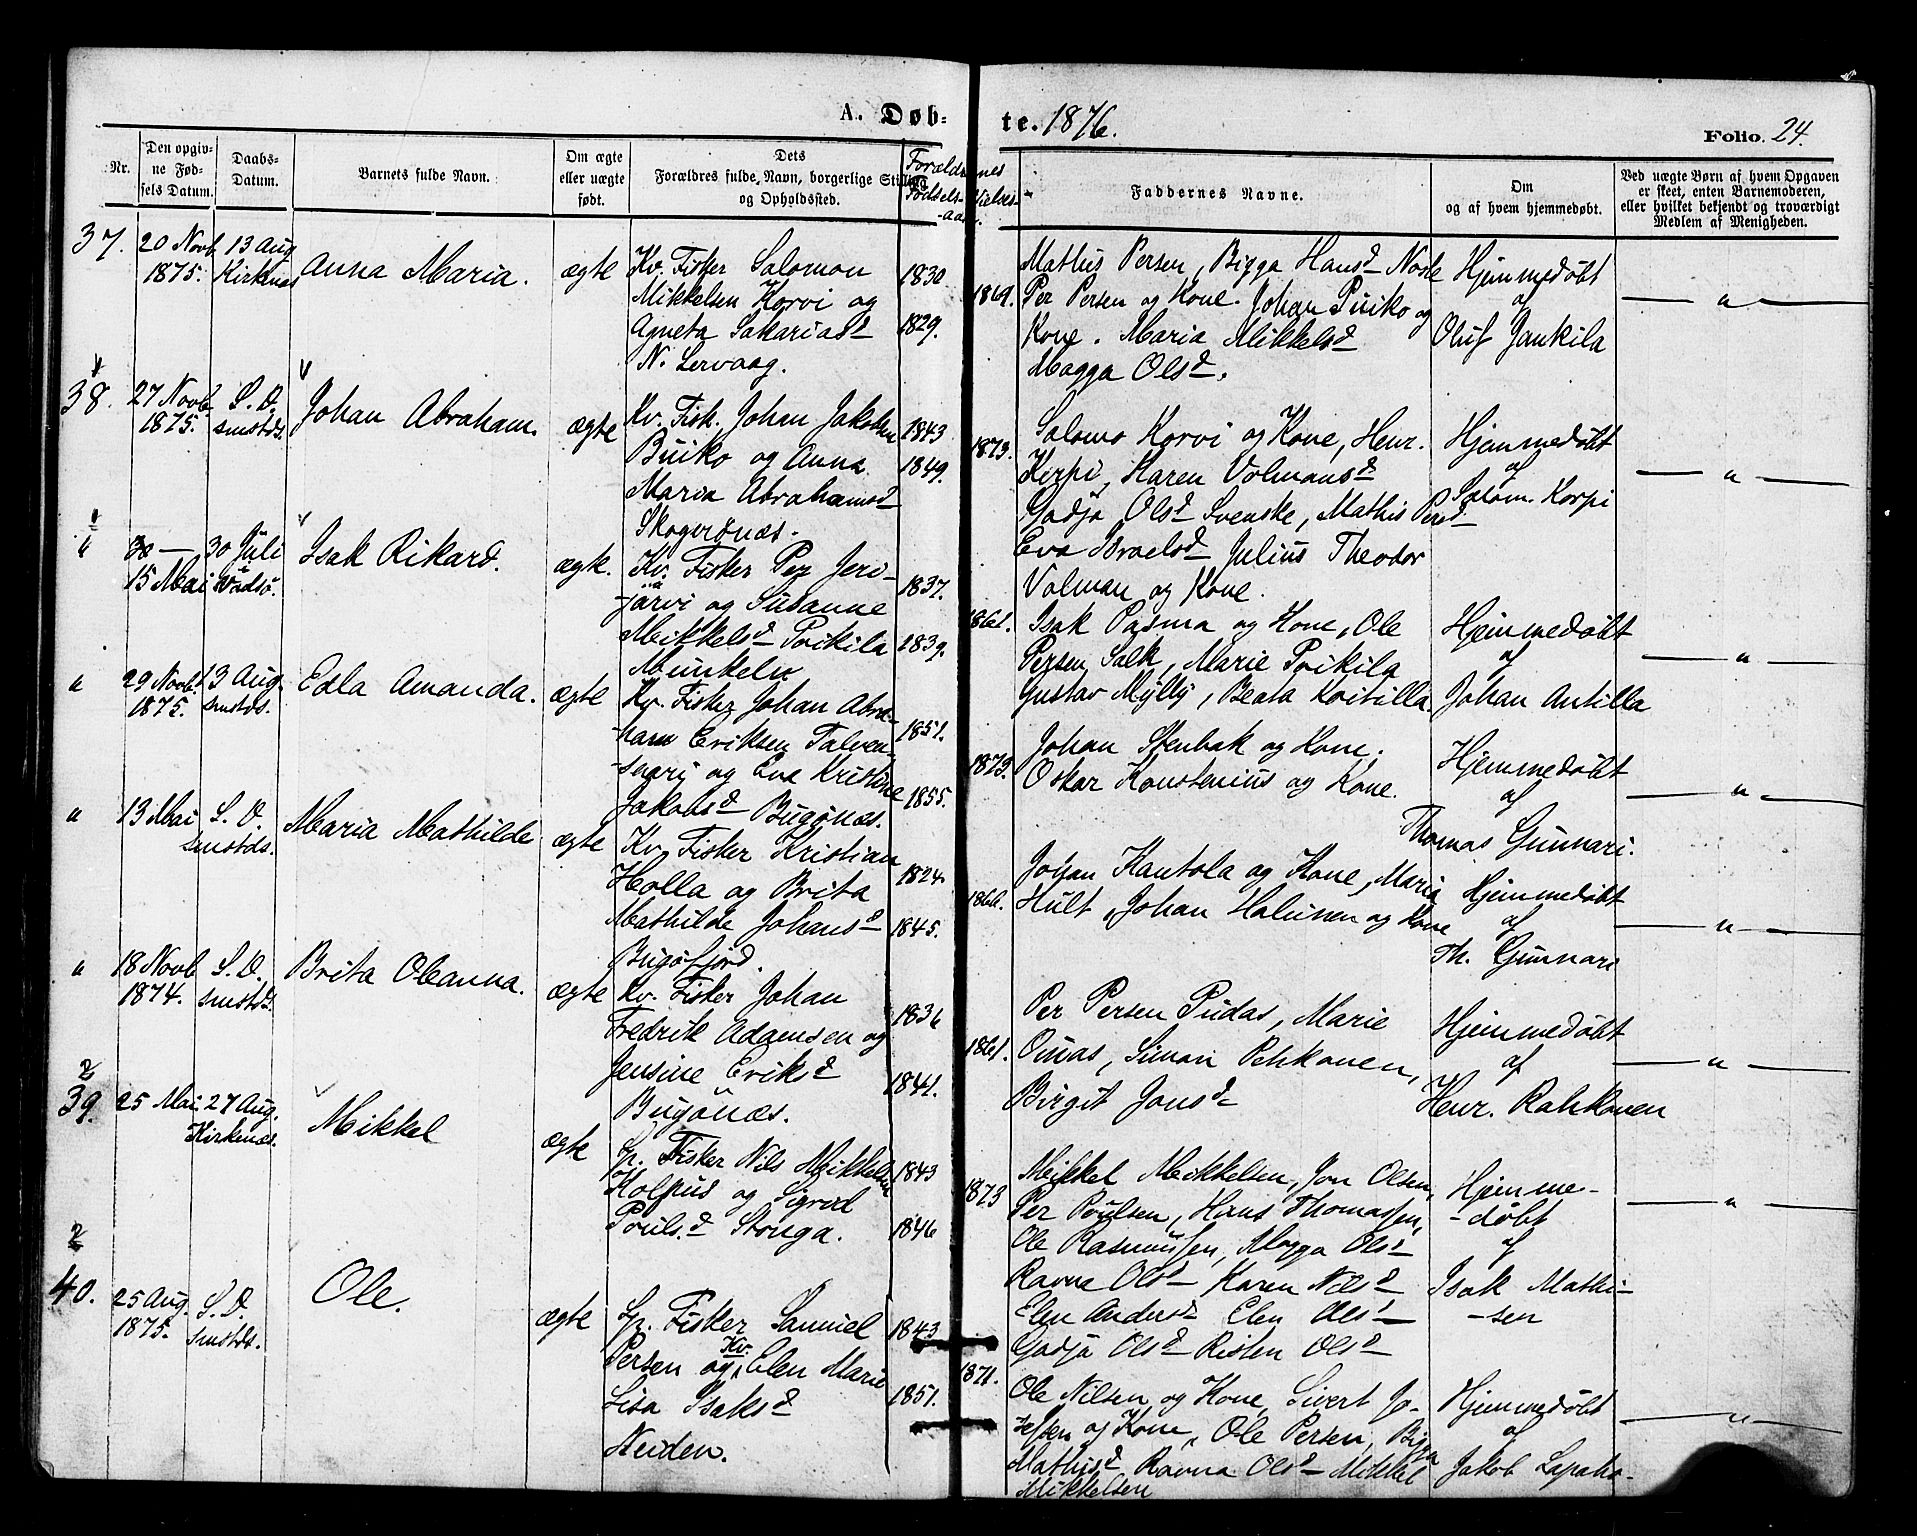 A. Døb-
te. 1876.
Folio. 24.
Nr.
Den opgiv-
ne Fød-
sels Datum.
Daabs-
Datum.
Barnets fulde Navn.
Om ægte
eller uægte
født.
Dets
Forældres fulde Navn, borgerlige Stilling
og Opholdssted.
Forældrenes
Fødsels-
-aar.
Vielses-
Faddernes Navne.
Om
og af hvem hjemmedøbt.
Ved uægte Børn af hvem Opgaven
er skeet, enten Barnemoderen,
eller hvilket bekjendt og troværdigt
Medlem af Menigheden.
37.
20 Novb
1875.
13 Aug
Kirkenæs
Anna Maria.
ægte
Kv. Fisker Salomon
Mikkelsen Korvi og
Agneta Sakariasd
N. Lervaag.
1830
1829.
1869.
Mathis Persen, Bigga Hansd
Per Persen og Kone. Johan Puiko og
Kone. Maria Mikkelsd
Magga Olsd.
Hjemmedøbt
af
Oluf Jankila
— " —
38.
27 Novb
1875.
S. D.
smstds.
Johan Abraham.
ægte
Kv. Fisk. Johan Jakobsen
Buiko og Anna
Maria Abrahamsd
Skogerønæs.
1843
1849.
1873.
Salomo Korvi og Kone, Henr.
Kirpi, Karen Volmansd
Gadja Olsd Svenske, Mathis Persd
Eva Israelsd Julius Theodor
Volman og Kone.
Hjemmedøbt
af
Salom. Korpi
— " —
"
30 —
15 Mai
30 Juli
Vadsø.
Isak Rikard.
ægte.
Kv. Fisker Per Jeri-
järvi og Susanne
Mikkelsd Poikila
Munkeln
1837.
1839.
1861.
Isak Pasma og Kone, Ole
Persen Salk, Marie Poikila
Gustav Mÿllÿ, Beata
Hjemmedøbt
af
Johan Antilla
— " —
"
29 Novb.
1875.
13 Aug.
smstds.
Edla Amanda.
ægte
Kv. Fisker Johan Abra-
-ham Eriksen Talven-
-saari og Eva Kristine
Jakobsd Bugønæs.
1851.
1855.
1873.
Johan Stenbak og Kone.
Oskar Konstenius og Kone.
Hjemmedøbt
af
Thomas Gunnari.
— " —
"
13 Mai
S. D.
smstds.
Maria Mathilde
ægte
Kv. Fisker Kristian
Holla og Brita
Mathilde Johansd
Bugøfjord.
1824
1845.
1866.
Johan Kantola og Kone, Maria
Hult, Johan Halunen og Kone
Hjemmedøbt
af
Th. Gunnari
— " —
"
18 Novb
1874.
S. D.
smstds.
Brita Oleanna.
ægte
Kv. Fisker Johan
Fredrik Adamsen og
Jensine Eriksd
Bugønæs.
1836
1841.
1861.
Per Persen Pudas, Marie
Onas, Simon Pehkonen,
Birgit Jonsd
Hjemmedøbt
af
Henr. Rahkonen
— " —
39.
25 Mai
27 Aug.
Kirkenæs.
Mikkel
ægte
Sp. Fisker Nils Mikkelsen
Kolpus og Sigrid
Poulsd Stonga.
1843
1846
1873
Mikkel Mikkelsen, Jon Olsen,
Per Poulsen, Hans Thomassen,
Ole Rasmussen, Magga Olsd
Ravna Olsd Karen Nilsd
Elen Andersd Elen Olsd
Gadja Olsd Risten Olsd
Hjemme-
-døbt
af
Isak Mathi-
-sen
— " —
40.
25 Aug.
1875.
S. D.
smstds.
Ole.
ægte
Sp. Fisker Samuel
Persen og Kv. Elen Marie
Lisa Isaksd
Neiden.
1843
1851.
1871.
Ole Nilsen og Kone, Sivert Jo-
-sefsen og Kone, Ole Persen, Bigga
Mathisd, Ravna Olsd Mikkel
Mikkelsen
Hjemmedøbt
af
Jakob
— " —